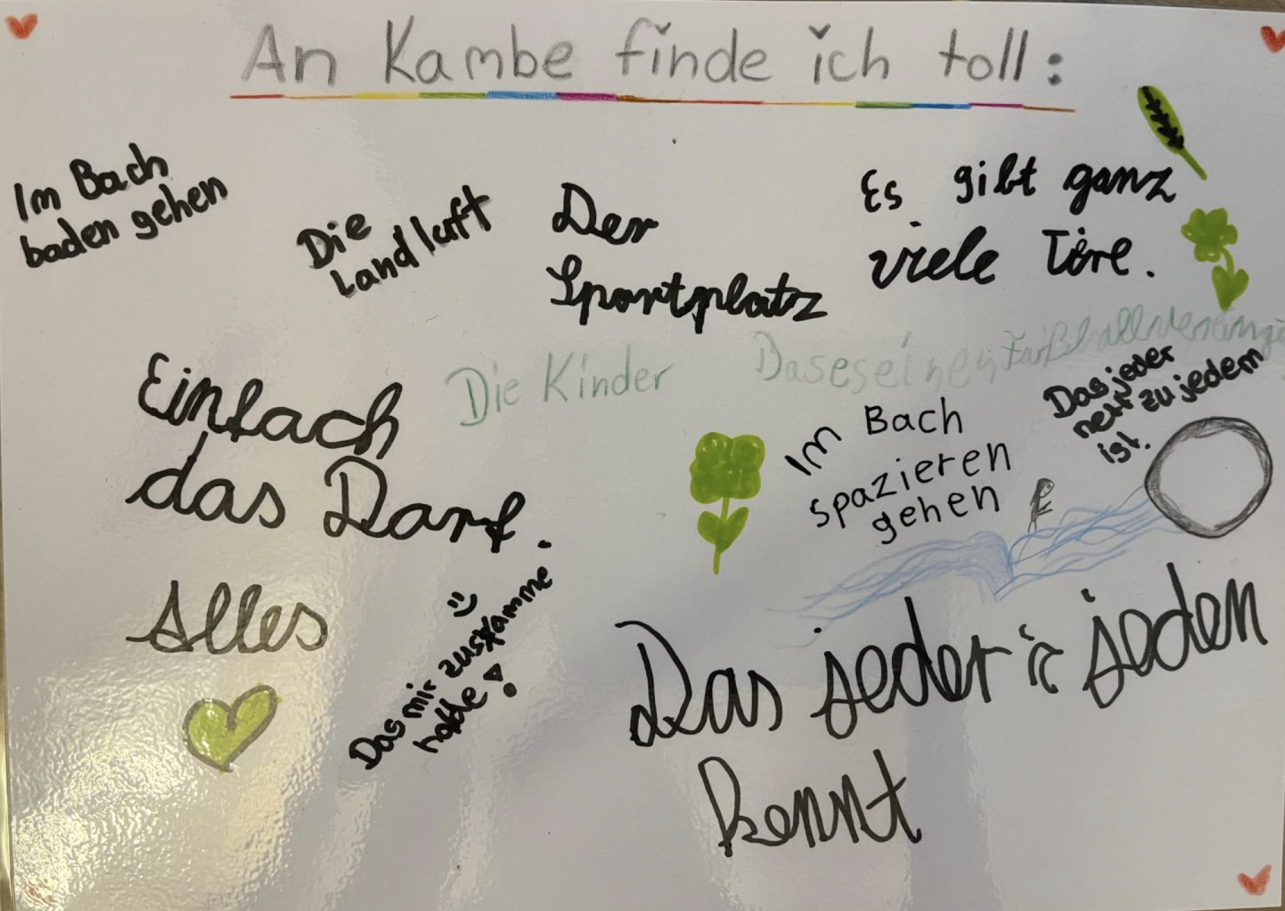 An Kambe finde ich toll:
Im Bach
baden gehen
Die
Landluft
Der
Sportplatz
Es gibt ganz
viele Töre.
Die Kinder
Das es einen Fußballverein gi
Einfach
das Darf.
Im Bach
spazieren
gehen
Das jeder
nett zu jedem
ist.
Alles
Das mir zusamme
halte!
Das jeder jeden
kennt